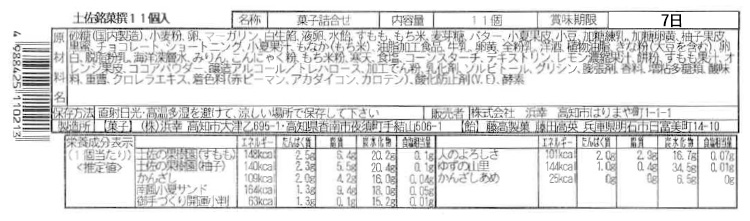 土佐銘菓撰11個入
名称 菓子詰合せ 内容量 11個 賞味期限 7日
原材料名
砂糖(国内製造)、小麦粉、卵、マーガリン、白生餡、液卵、水飴、すもも、もち米、麦芽糖、バター、小夏果皮、小豆、加糖練乳、加糖卵黄、柚子果皮、
黒蜜、チョコレート、ショートニング、小夏果汁、もなか(もち米)、油脂加工食品、牛乳、卵黄、全粉乳、洋酒、植物油脂、きな粉(大豆を含む)、卵
白、脱脂粉乳、海洋深層水、みりん、はちみつ、もち米粉、寒天、食塩、コーンスターチ、デキストリン、レモン濃縮果汁、餅粉、すもも果汁、オ
レンジ果皮、ココアパウダー、醸造アルコール/トレハロース、加工でん粉、乳化剤、ソルビトール、グリシン、膨張剤、香料、増粘多糖類、酸味
料、重曹、クロレラエキス、着色料(赤ビーマン、アカダイコン、カロテン)、酸化防止剤(V.E)、酵素
保存方法 直射日光・高温多湿を避けて、涼しい場所で保存して下さい 販売者 株式会社 浜幸 高知市はりまや町1-1-1
製造所 【菓子】(株)浜幸 高知市大津乙695-1・高知県香南市夜須町手結山506-1 【飴】藤高製菓 藤田高英 兵庫県明石市日富美町14-10
栄養成分表示
(1個当たり)
<推定値>
エネルギー たんぱく質 脂質 炭水化物 食塩相当量
土佐の果樹園(すもも) 148kcal 2.5g 6.4g 20.2g 0.1g
土佐の果樹園(柚子) 140kcal 2.3g 5.5g 20.4g 0.1g
かんざし 109kcal 2.0g 4.2g 16.0g 0.04g
南風小夏サンド 164kcal 1.3g 9.4g 18.0g 0.05g
御手づくり開運小判 63kcal 1.3g 0.1g 15.2g 0.01g
エネルギー たんぱく質 脂質 炭水化物 食塩相当量
人のよろしさ 101kcal 2.0g 2.9g 16.7g 0.07g
ゆずの山里 144kcal 1.0g 0.4g 34.5g 0.01g
かんざしあめ 25kcal 0g 0g 6.5g 0g
4988425110213